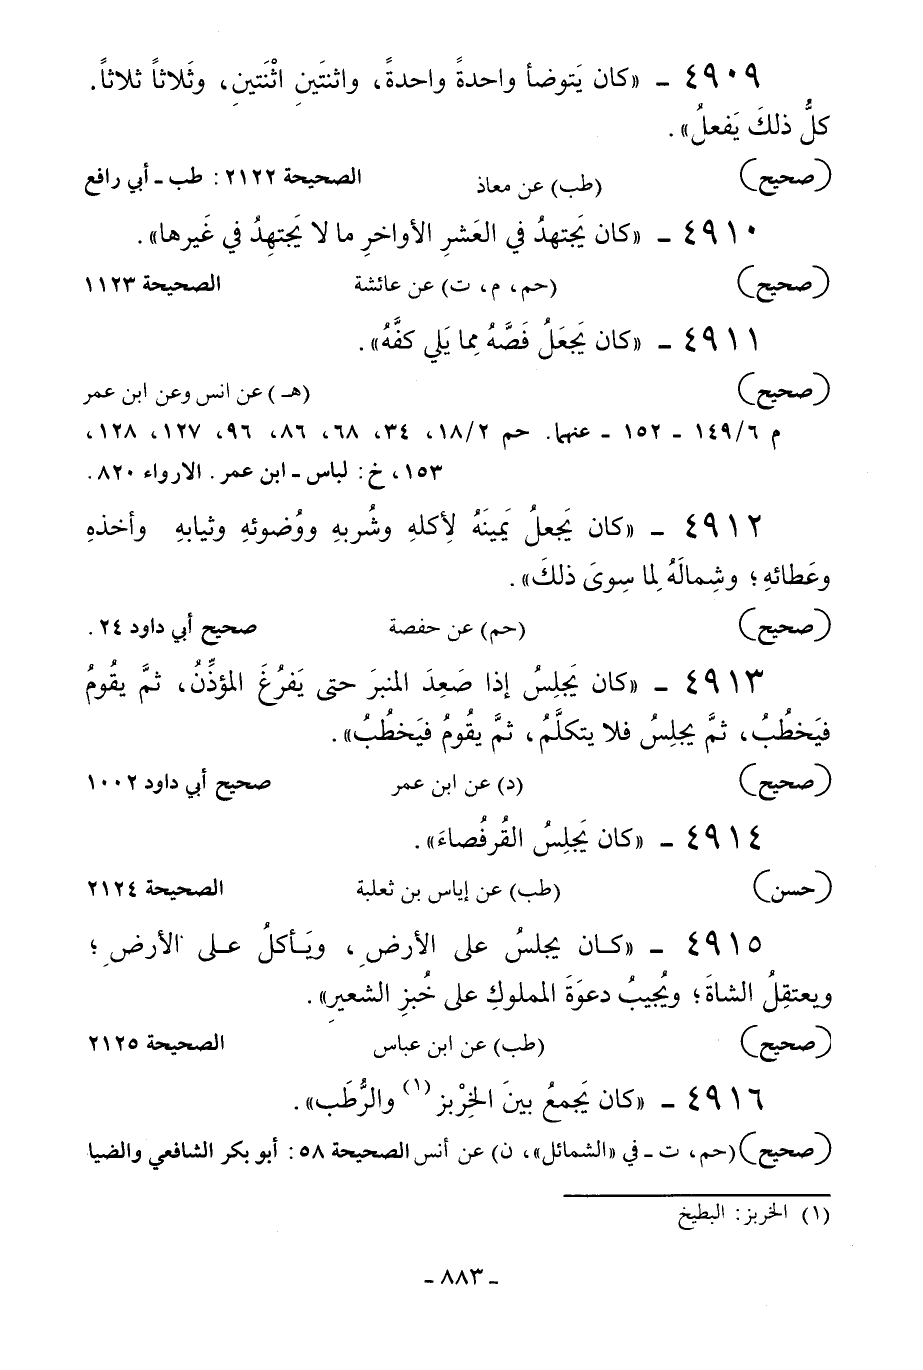 ٤٩٠٩ ـ «كان يَتوضأ واحدةً واحدةً، واثنتَينِ اثْنَتينِ، وثَلاثاً ثلاثاً.
كلُّ ذلكَ يَفعلُ».
(صحيح) (طب) عن معاذ الصحيحة ٢١٢٢ : طب ـ أبي رافع
٤٩١٠ ـ «كان يَجتهدُ في العَشرِ الأواخرِ ما لا يَجتهِدُ في غَيرها».
(صحيح) (حم، م، ت) عن عائشة الصحيحة ١١٢٣
٤٩١١ ـ «كان يَجعَلُ فَصَّهُ مِما يَلي كفَّهُ».
(صحيح) (هـ) عن انس وعن ابن عمر
م ١٤٩/٦ ـ ١٥٢ ـ عنهما. حم ١٨/٢، ٣٤، ٦٨، ٨٦، ٩٦، ١٢٧، ١٢٨،
١٥٣، خ : لباس ـ ابن عمر. الارواء ٨٢٠.
٤٩١٢ ـ «كان يَجعلُ يَمينَهُ لِأكلهِ وشُربهِ ووُضوئهِ وثيابهِ وأخذهِ
وعَطائهِ؛ وشِمالَهُ لِما سِوىَ ذلكَ».
(صحيح) (حم) عن حفصة صحيح أبي داود ٢٤ .
٤٩١٣ ـ «كان يَجلِسُ إذا صَعِدَ المنبرَ حتى يَفرُغَ المؤذِّنُ، ثمَّ يقُومُ
فيَخطُبُ، ثمَّ يجلِسُ فلا يتكلَّمُ، ثمَّ يقُومُ فيَخطُبُ».
(صحيح) (د) عن ابن عمر صحيح أبي داود ١٠٠٢
٤٩١٤ ـ «كان يَجلِسُ القُرفُصاءَ».
(حسن) (طب) عن إياس بن ثعلبة الصحيحة ٢١٢٤
٤٩١٥ ـ «كـان يجلسُ على الأرضِ، ويَـأكلُ عـلى الأرضِ؛
ويعتقِلُ الشاةَ؛ ويُجيبُ دعوَةَ المملوكِ على خُبزِ الشعيرِ».
(صحيح) (طب) عن ابن عباس الصحيحة ٢١٢٥
٤٩١٦ ـ «كان يَجمعُ بينَ الخِرْبز (١) والرُّطَب».
(صحيح) (حم، ت ـ في «الشمائل»، ن) عن أنس الصحيحة ٥٨ : أبو بكر الشافعي والضيا
(١) الخربز: البطيخ
ـ ٨٨٣ ـ